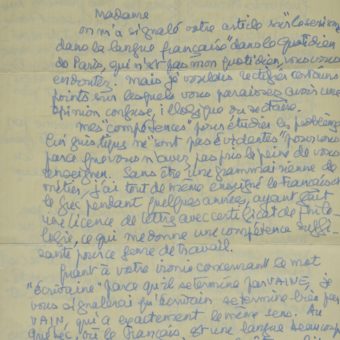 Madame
on m'a signalé votre article sur "le sexisme
dans la langue française" dans le Quotidien
de Paris, qui n'est pas mon quotidien, vous vous
en doutez. mais je voudrais rectifier certains
points sur lesquels vous paraissez avoir une
opinion confuse, illogique ou sectaire.
mes "compétences" pour étudier les problèmes
linguistiques ne "sont pas évidentes" pour vous
parce que vous n'avez pas pris la peine de vous
renseigner. Sans être une grammairienne de
métier j'ai tout de même enseigné le français et
le grec pendant quelques années, ayant fait
une licence de lettres avec certificat de philo-
logie, ce qui me donne une compétence suffi-
sante pour ce genre de travail.
Quant à votre ironie concernant le mot
"écrivaine" parce qu'il se termine par VAINE, je
vous signalerai qu'écrivain se termine très par
VAIN, qui a exactement le même sens. Au
Québec, où le français est une langue beaucoup